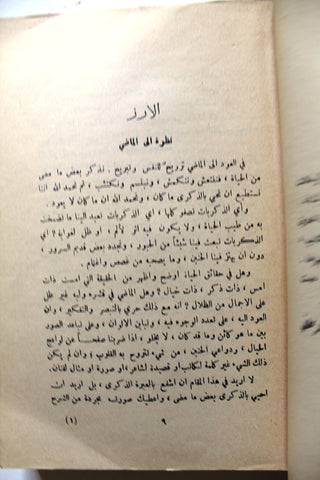 الارز
نظرة الى الماضي
في العود الى الماضي ترويح للنفس وتفريج. نذكر بعض ما مضى
من الحياة، فننتعش وننكمش، ونبتسم ونكتئب، ثم نحمد الله اننا
نستطيع ان نحيي بالذكرى ما كان، ونحمد الله ان ما كان لا يعود.
وأي الذكريات نصفو كلها، اي الذكريات تعيد الينا ما تضمخت
به من طيب الحياة، ولا يكون فيه اثر لألم، او ظل لغواية؟ اي
الذكريات تبعث فينا شيئاً من الحبور، وتجدد بعض قديم السرور،
دون ان يهتز فينا الحنين، وما يصحبه من غصص واغتام.
وهل في حقائق الحياة اوضح واظهر من الحقيقة التي امست ذات
امس، ذات ذكر، ذات خيال؟ وهل الماضي في قشره ولبه غير ظل
على الاجمال من الظلال؟ انه مع ذلك حري بالتبصر والتفكير، وان
العود اليه، على تعدد الوجوه فيه، وتباين الالوان، وعلى تباعد الصور
بين ما هو كائن وما قد كان، لا يخلو، اذا ضربنا صفحاً عن لواعج
الخيال، ودواعي الحنين، من شيء تتروح به القلوب، وان لم يكن
ذلك الشيء غير كلمة لكاتب او قصيدة لشاعر، او صورة او مثال لفنان.
لا اريد في هذا المقام ان اشفع بالعبرة الذكرى، بل اريد ان
احيي بالذكرى بعض ما مضى، واعطيك صورته مجردة من الشرح
٩
(١)